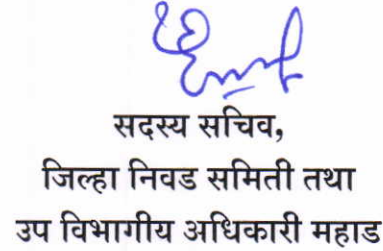 सदस्य सचिव,
जिल्हा निवड समिती तथा
उप विभागीय अधिकारी महाड